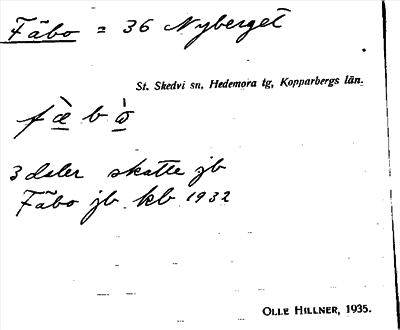 Fäbo = 36 Nyberget
St. Skedvi sn, Hedemora tg, Kopparbergs län.
f æ̀ b ὼ
3 daler skatte jb
Fäbo jb kb 1932
OLLE HILLNER, 1935.